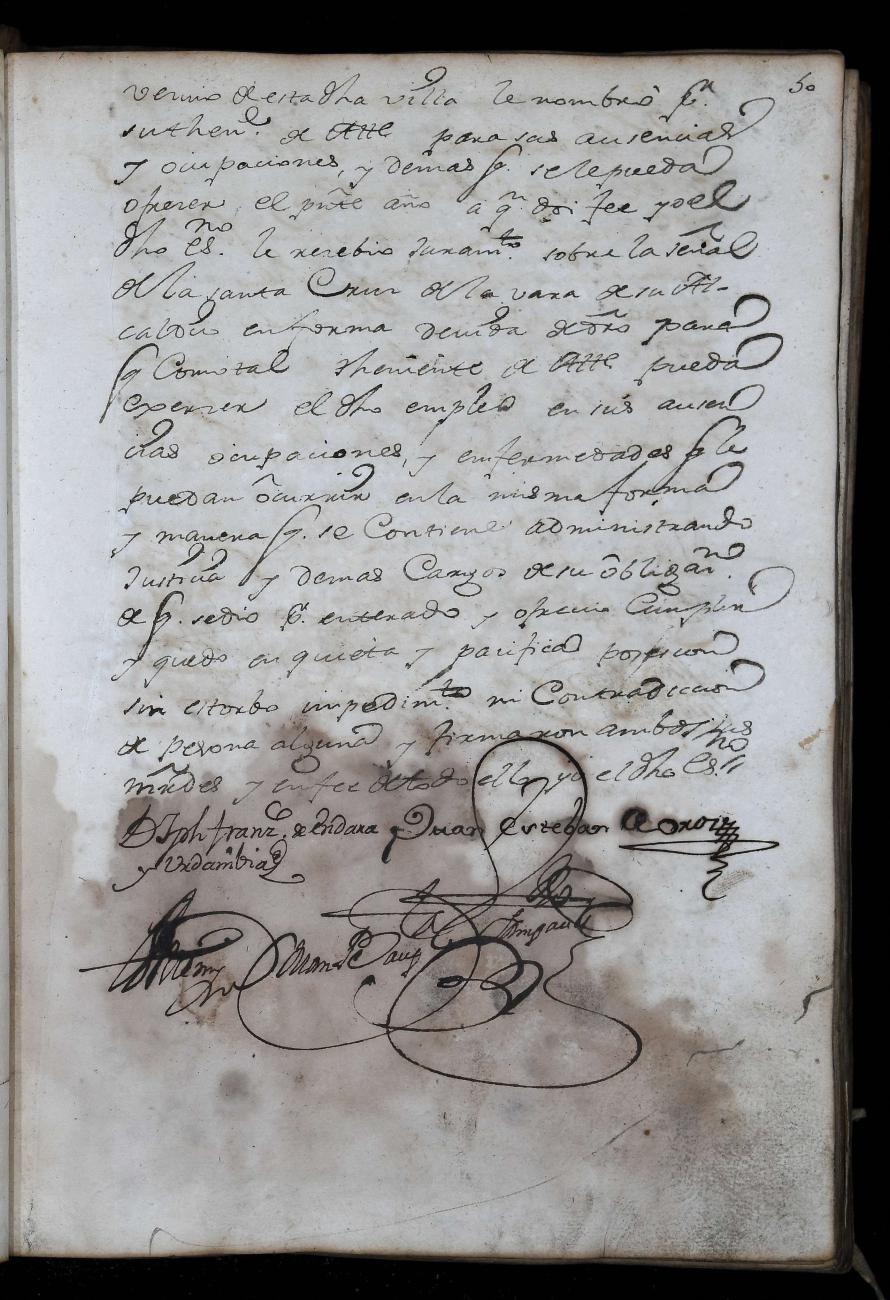 50
vecino de esta dha villa le nombró pr.
su then.e de Alle para sus ausencias
y ocupaciones, y demas q. se le pueda
ofrecer el pnte año a q.n doi fee y o el
dho es.no le recebio Juram.to sobre la señal
de la santa Cruz de la vara de su Al-
caldia en forma devida de dro para
q Como tal theniente de Alle pueda
exerzer el dho empleo en sus ausen
cias ocupaciones, y enfermedades q le
puedan ocurrir en la misma forma
y manera q. se Contiene administrando
Justicia y demas Cargos de su obligaz.n
de q. se dio pr. enterado y ofrecio Cumplir
y quedo en quieta y pacifica posesion
sin estorbo impedim.to ni Contradiccion
de persona alguna y firmaron ambos sus
mrzdes y en fee de todo ello yo el dho es.no
D Jph Franz.co de Endara y Juan Esteban de oroiz
y Urdambia
Ante my
Juan